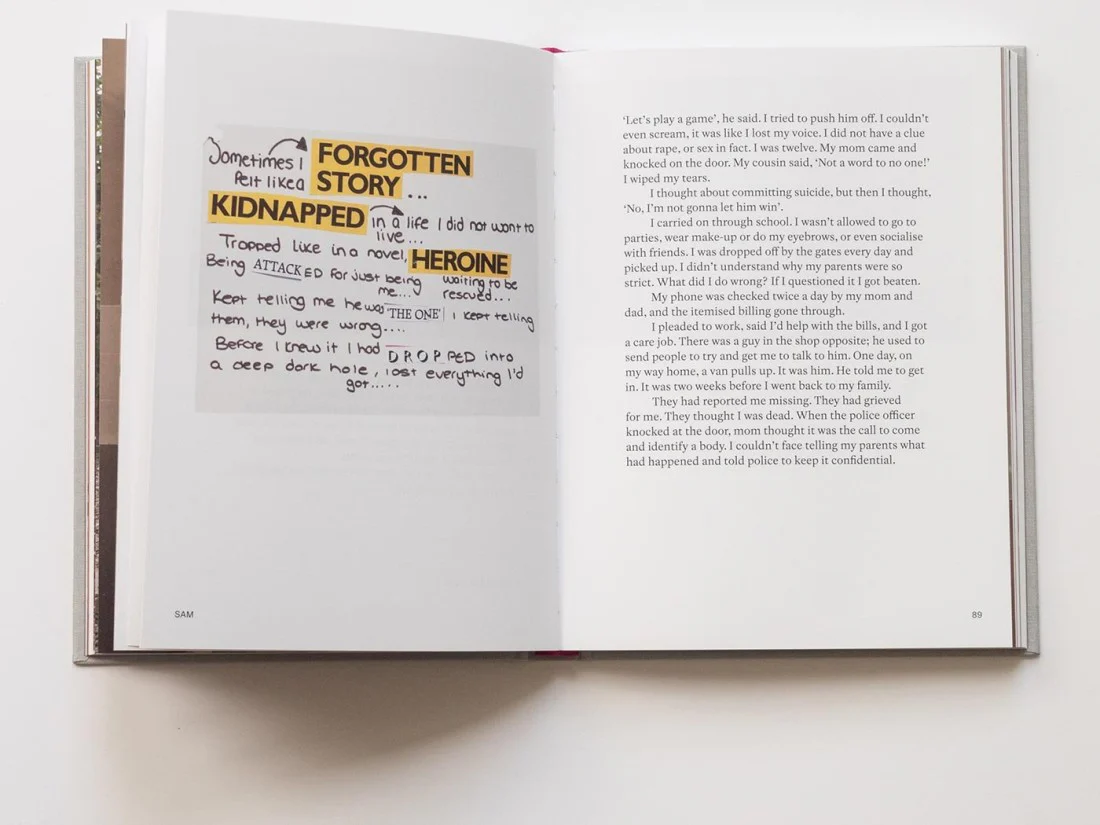 Sometimes I FORGOTTEN
felt like a STORY ...
KIDNAPPED in a life I did not want to
live...
Trapped like in a novel, HEROINE
Being ATTACKED for just being waiting to be
me.... rescued...
Kept telling me he was 'THE ONE' I kept telling
them, they were wrong....
Before I knew it I had DROPPED into
a deep dark hole, lost everything I'd
got.....
SAM
‘Let’s play a game’, he said. I tried to push him off. I couldn’t
even scream, it was like I lost my voice. I did not have a clue
about rape, or sex in fact. I was twelve. My mom came and
knocked on the door. My cousin said, ‘Not a word to no one!’
I wiped my tears.
I thought about committing suicide, but then I thought,
‘No, I’m not gonna let him win’.
I carried on through school. I wasn’t allowed to go to
parties, wear make-up or do my eyebrows, or even socialise
with friends. I was dropped off by the gates every day and
picked up. I didn’t understand why my parents were so
strict. What did I do wrong? If I questioned it I got beaten.
My phone was checked twice a day by my mom and
dad, and the itemised billing gone through.
I pleaded to work, said I’d help with the bills, and I got
a care job. There was a guy in the shop opposite; he used to
send people to try and get me to talk to him. One day, on
my way home, a van pulls up. It was him. He told me to get
in. It was two weeks before I went back to my family.
They had reported me missing. They had grieved
for me. They thought I was dead. When the police officer
knocked at the door, mom thought it was the call to come
and identify a body. I couldn’t face telling my parents what
had happened and told police to keep it confidential.
89